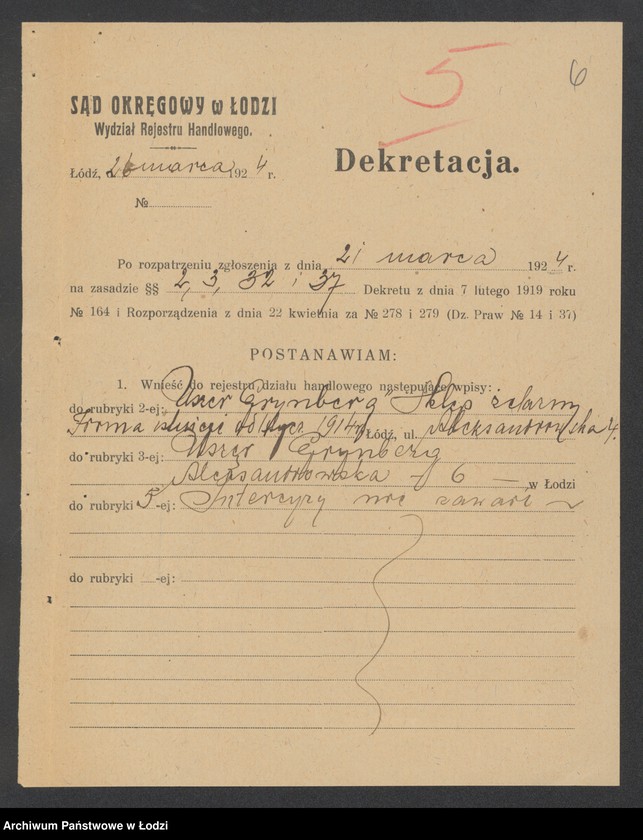 5
6
SĄD OKRĘGOWY w ŁODZI
Wydział Rejestru Handlowego.
Dekretacja.
Łódź, d. 26 marca 1924 r.
№
Po rozpatrzeniu zgłoszenia z dnia 21 marca 1924 r.
na zasadzie §§ 2, 3, 32 i 37 Dekretu z dnia 7 lutego 1919 roku
№ 164 i Rozporządzenia z dnia 22 kwietnia za № 278 i 279 (Dz. Praw № 14 i 37)
POSTANAWIAM:
1. Wnieść do rejestru działu handlowego następujące wpisy:
do rubryki 2-ej: "Uszer Grynberg" Sklep
Firma istnieje od 1914 r. Łódź, ul. Aleksandrowska 4.
do rubryki 3-ej: Uszer Grynberg
Aleksandrowska – 6 – w Łodzi
do rubryki 5-ej: Intercyzy nie zawarł
do rubryki -ej:
Archiwum Państwowe w Łodzi